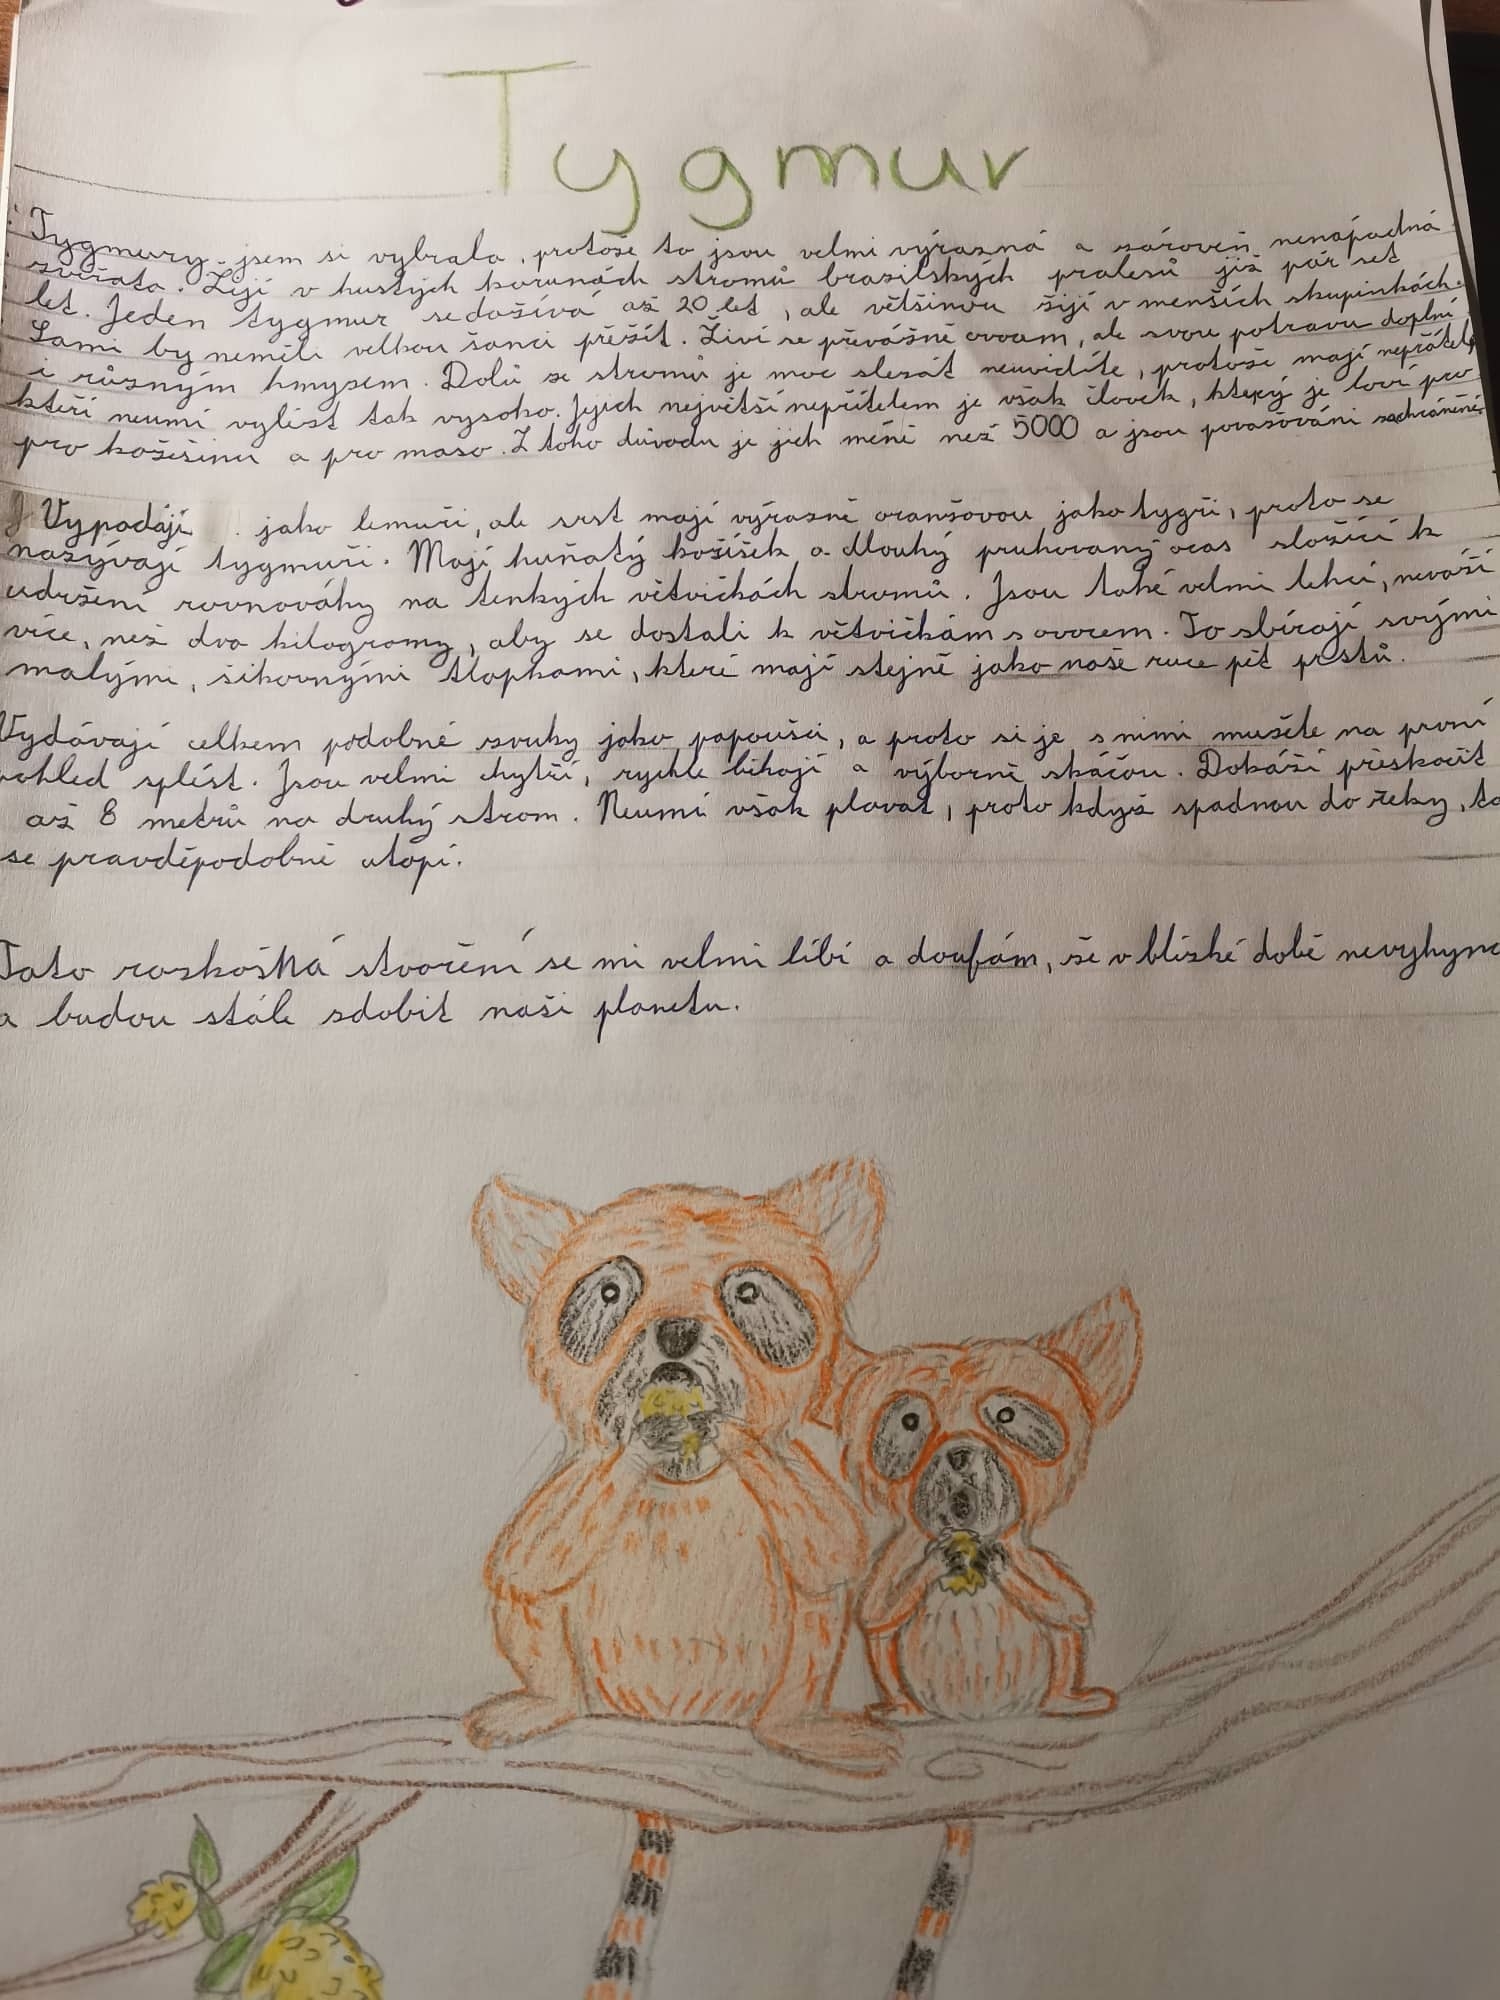 Tygmur
Tygmury jsem si vybrala, protože to jsou velmi výrazná a zároveň nenápadná
zvířata. Žijí v hustých korunách stromů brazilských pralesů již pár set
let. Jeden tygmur se dožívá až 20 let, ale většinou žijí v menších skupinkách.
Sami by neměli velkou šanci přežít. Živí se převážně ovocem, ale svou potravu doplní
i různým hmyzem. Dolů ze stromů je moc slézát neuvidíte, protože mají nepřátele,
kteří neumí vylézt tak vysoko. Jejich největší nepřítelem je však člověk, který je loví pro
pro kožešinu a pro maso. Z toho důvodu je jich méně než 5000 a jsou považováni za chráněné.
Vypadají jako lemuři, ale srst mají výrazně oranžovou jako tygři, proto se
nazývají tygmuři. Mají huňatý kožíšek a dlouhý pruhovaný ocas složící k
udržení rovnováhy na tenkých větvičkách stromů. Jsou také velmi lehcí, neváží
více, než dva kilogramy, aby se dostali k větvičkám s ovocem. To sbírají svými
malými, šikovnými tlapkami, které mají stejně jako naše ruce pět prstů.
Vydávají celkem podobné zvuky jako papoušci, a proto si je s nimi mužete na první
pohled splést. Jsou velmi chytří, rychle běhají a výborně skáčou. Dokáží přeskočit
až 8 metrů na druhý strom. Neumí však plavat, proto když spadnou do řeky, ta
se pravděpodobně utopí.
Tato rozkošná stvoření se mi velmi líbí a doufám, že v blízké době nevyhynou
a budou stále zdobit naši planetu.